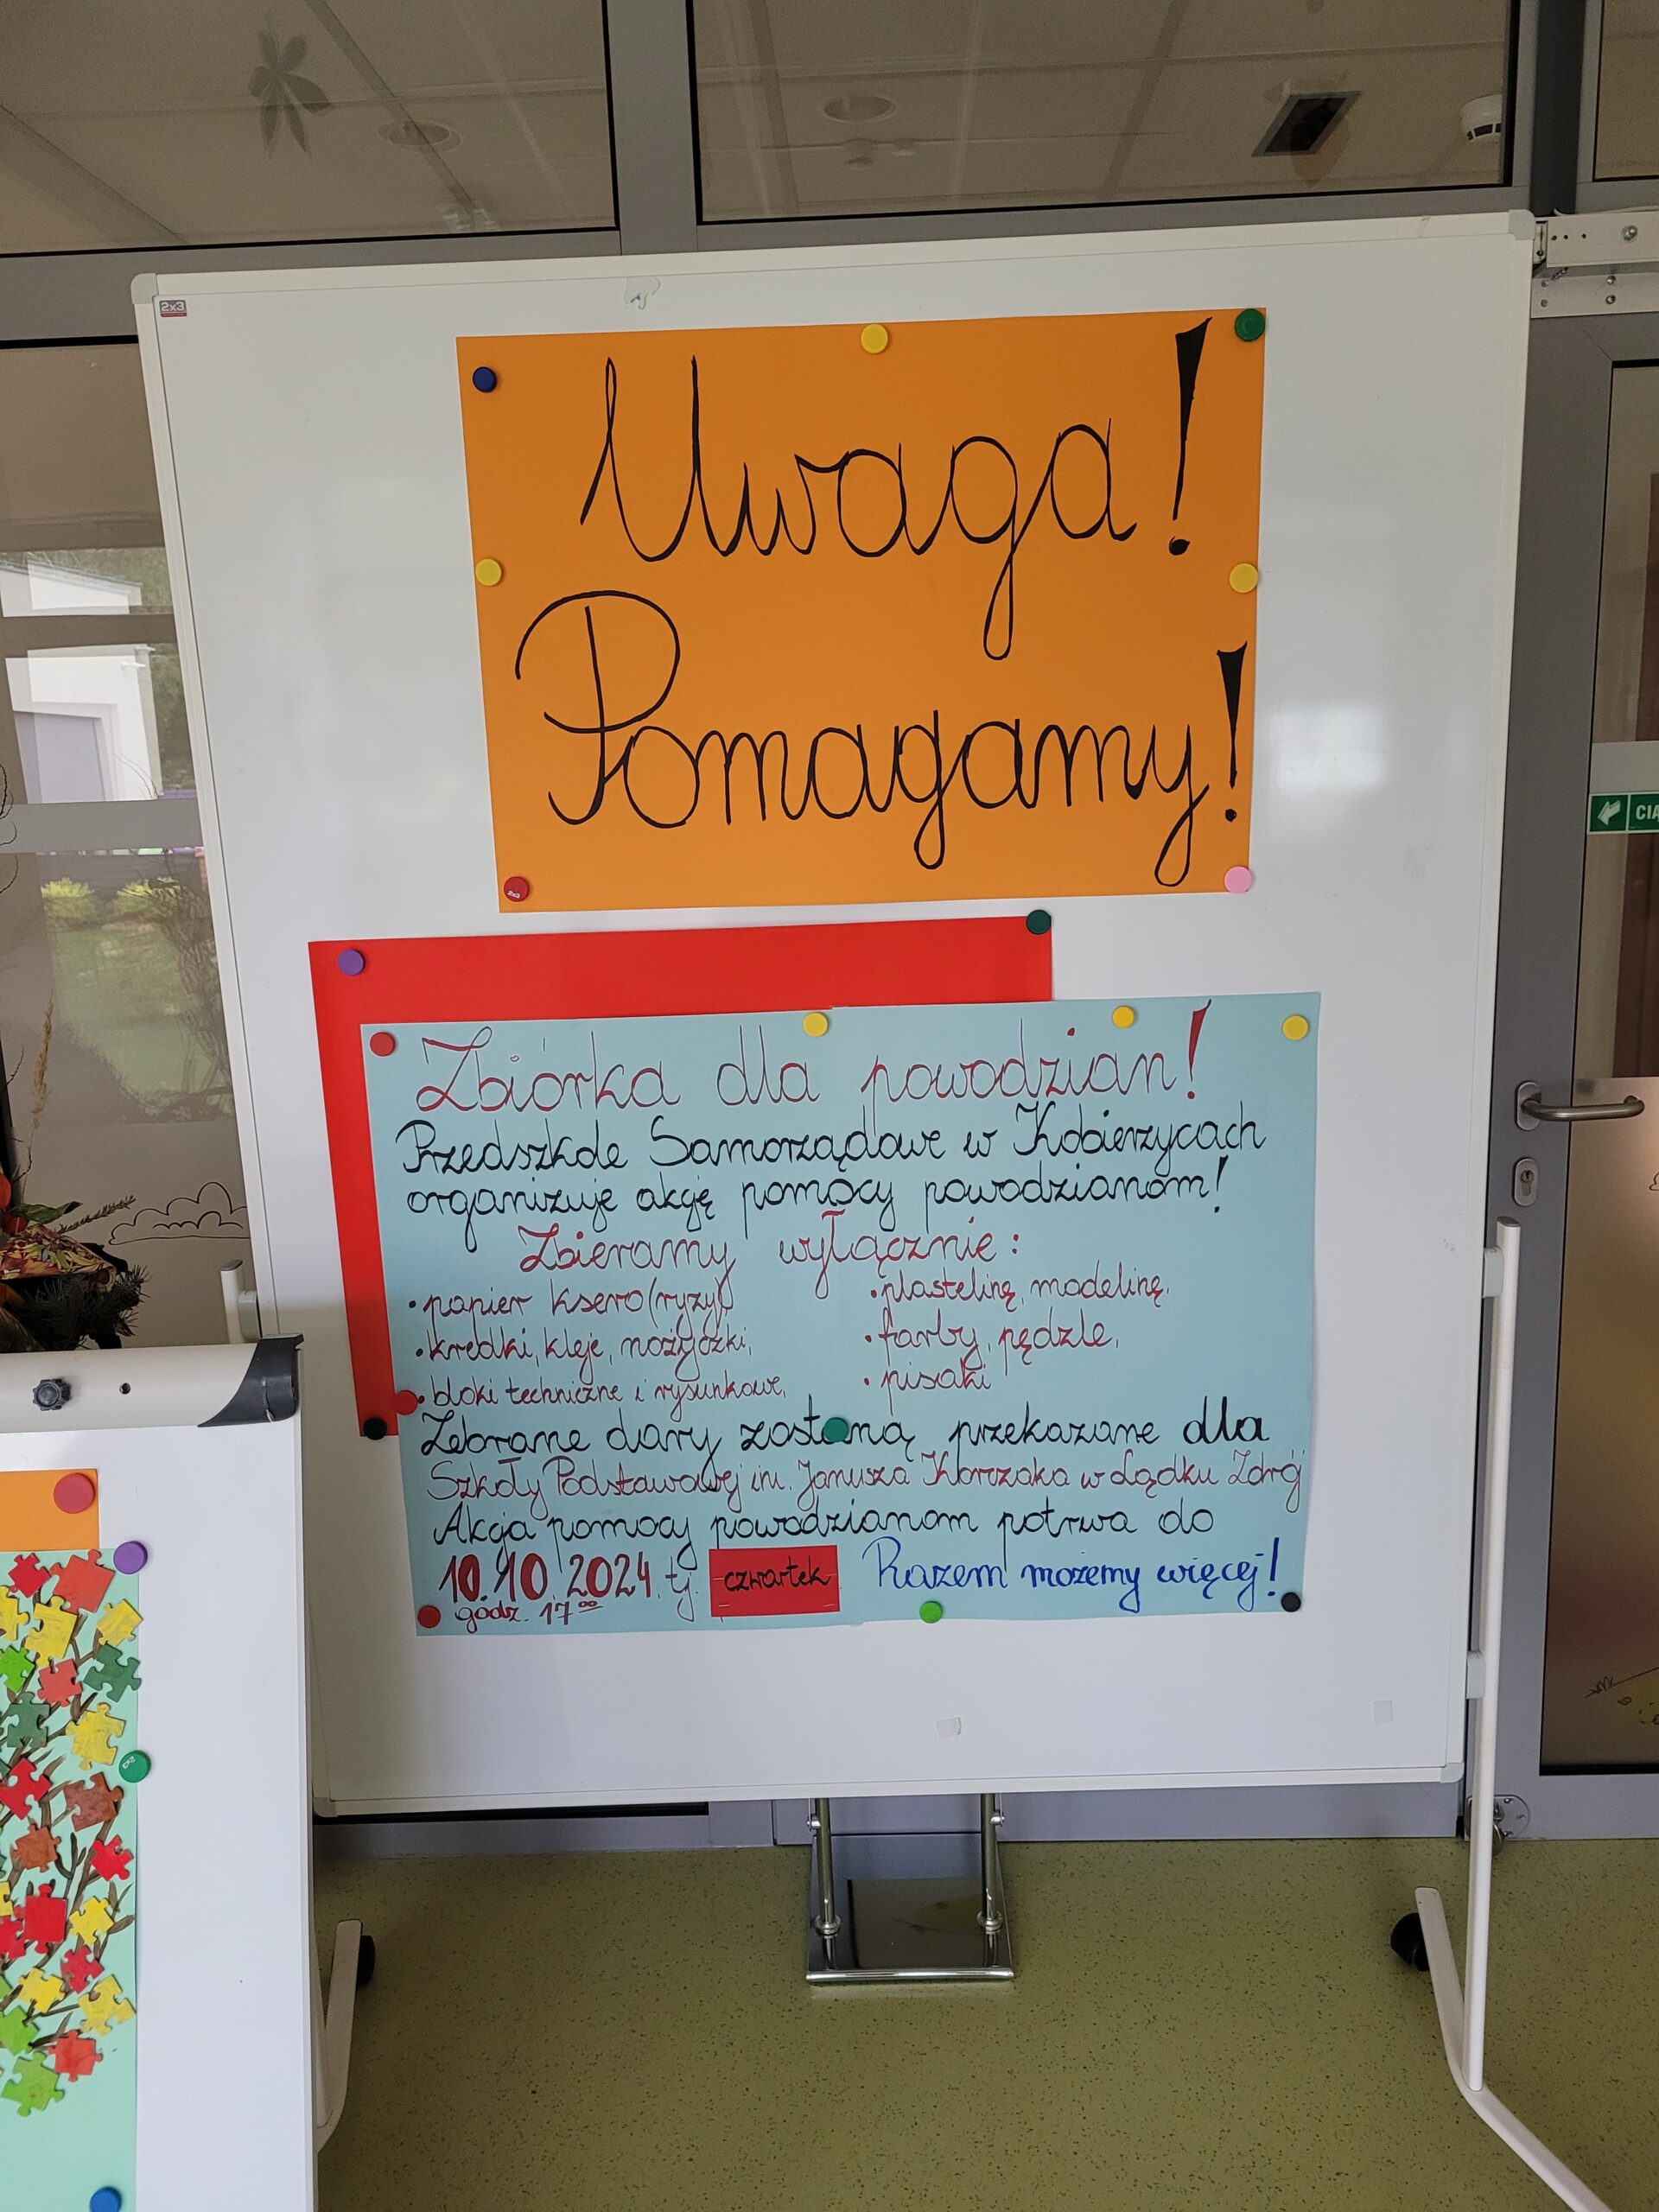 2x3
Uwaga!
Pomagamy!
Zbiórka dla powodzian!
Przedszkole Samorządowe w Kobierzycach
organizuje akcję pomocy powodzianom!
Zbieramy wyłącznie:
• papier ksero (ryzy)
• kredki, kleje, nożyczki,
• bloki techniczne i rysunkowe,
• plastelinę, modelinę,
• farby, pędzle,
• pisaki
Zebrane dary zostaną przekazane dla
Szkoły Podstawowej im. Janusza Korczaka w Lądku Zdrój
Akcja pomocy powodzianom potrwa do
10.10.2024 tj. czwartek Razem możemy więcej!
godz. 17⁰⁰
CIĄ